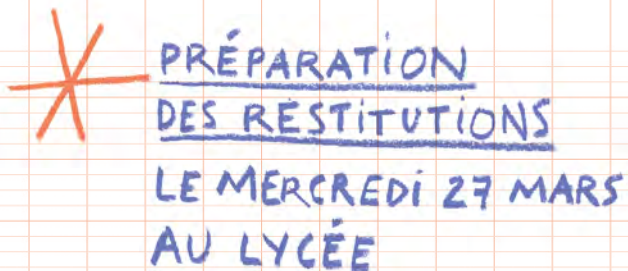 PRÉPARATION
DES RESTITUTIONS
LE MERCREDI 27 MARS
AU LYCÉE